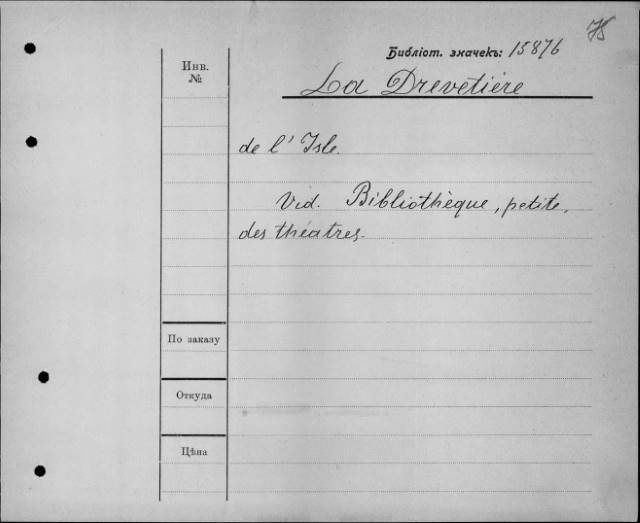 75
Библіот. значекъ: 15876
Инв.
№
La Drevetiére
de l' Isle.
Vid. Bibliothèque, petite,
des théatres.
По заказу
Откуда
Цѣна